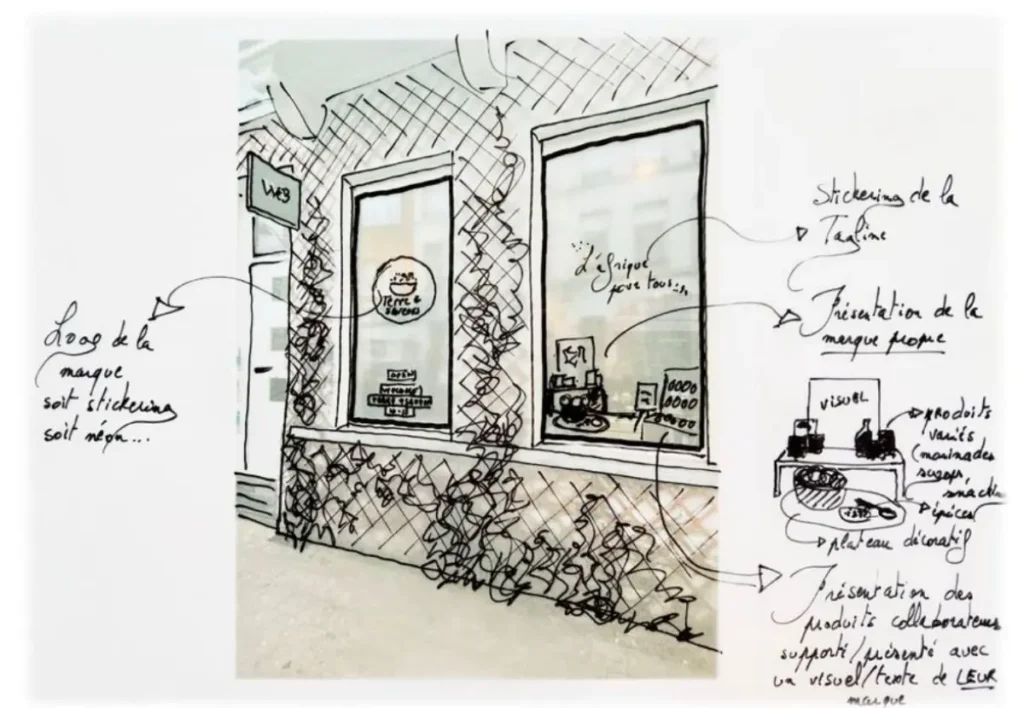 Logo de la
marque
soit stickering
soit néon...
WEB
Terre &
saveurs
OPEN
L'Afrique
pour tous...
Stickering de la
Tagline
Présentation de la
marque propre
VISUEL
produits
variés
(marinades
snack
épices
plateau décoratif
Présentation des
produits collaborateurs
supporté/présenté avec
un visuel/texte de LEUR
marque